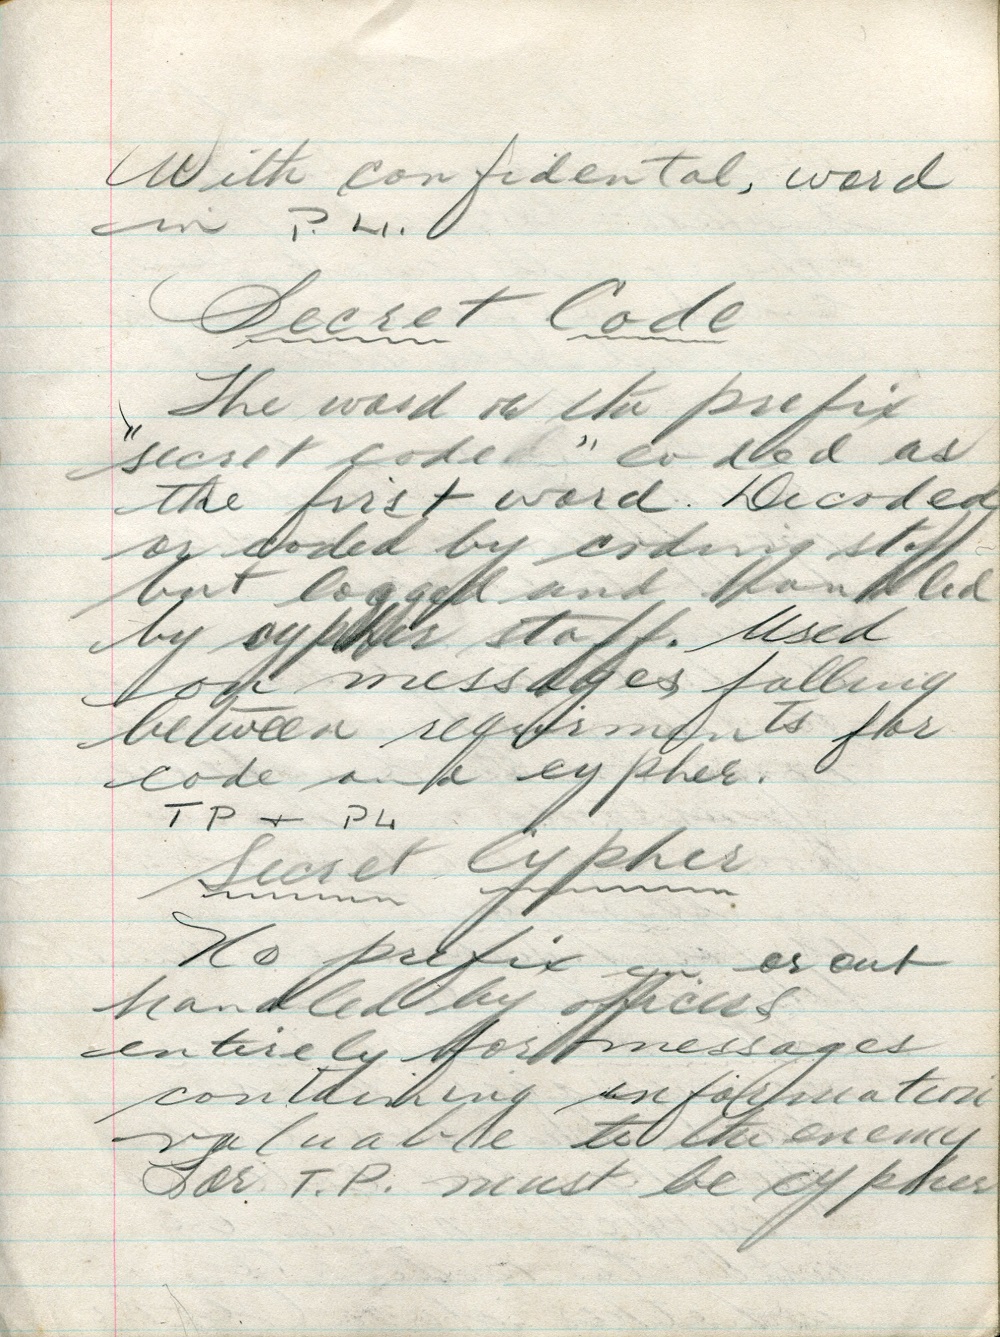 With confidental, word
in P.L.
Secret Code
The word or the prefix
"secret coded" coded as
the first word. Decoded
or coded by coding staff
but logged and handled
by cypher staff. Used
on messages falling
between requirments for
code and cypher.
TP + PL
Secret Cypher
No prefix in or out
handled by officers
entirely for messages
containing information
valuable to the enemy
For T.P. must be cypher